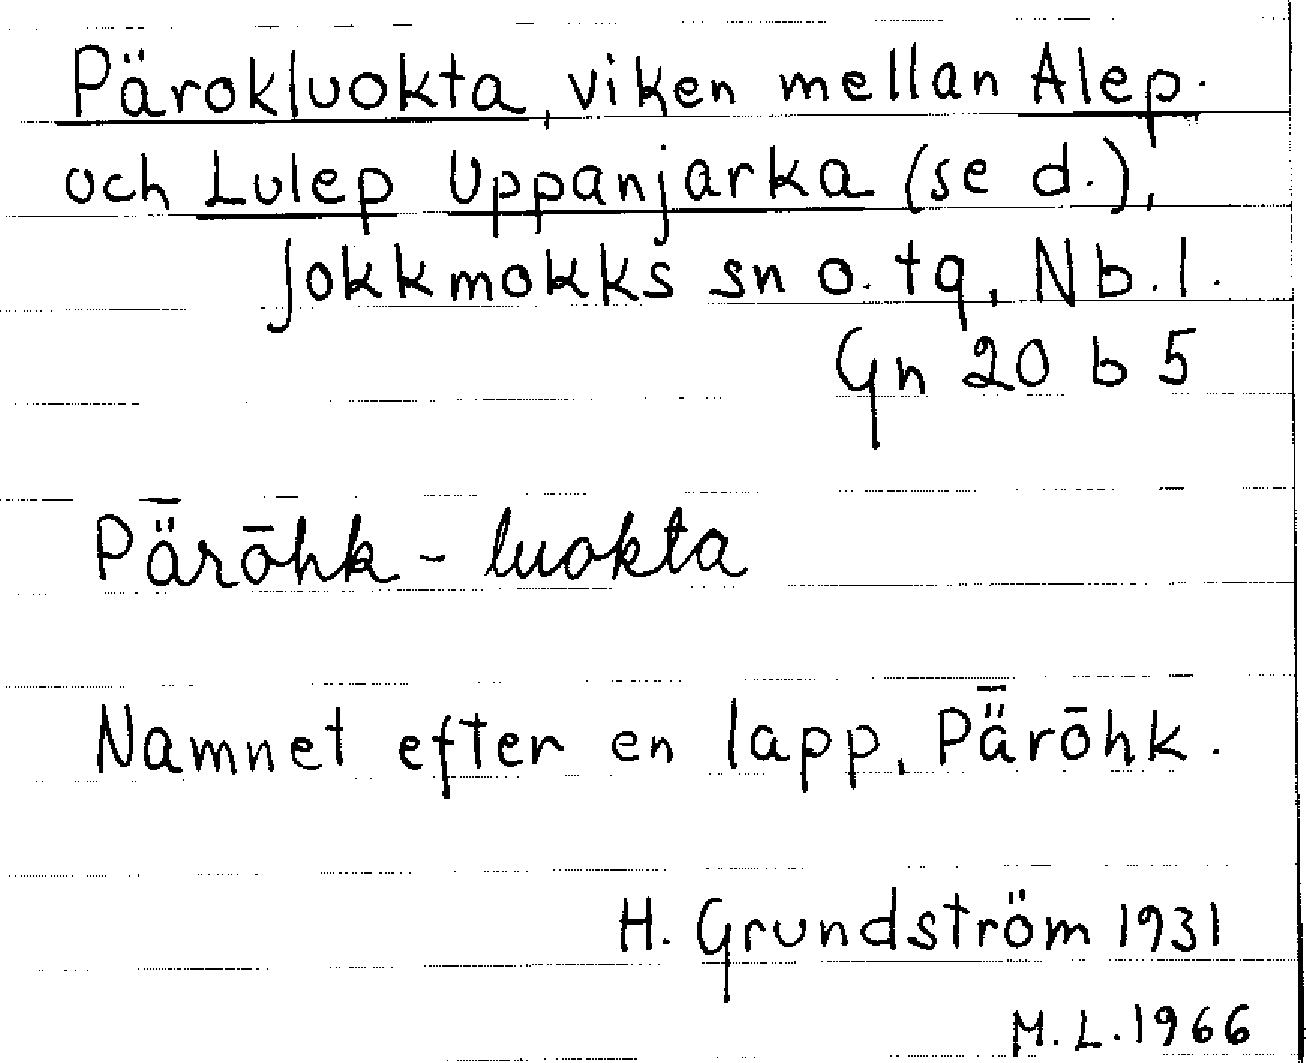 Pärokluokta, viken mellan Alep-
och Lulep Uppanjarka (se d.),
Jokkmokks sn o. tg, Nb. l.
Gn 20 b 5
Pǟrōhk - luokta
Namnet efter en lapp, Pǟrōhk.
H. Grundström 1931
M. L. 1966